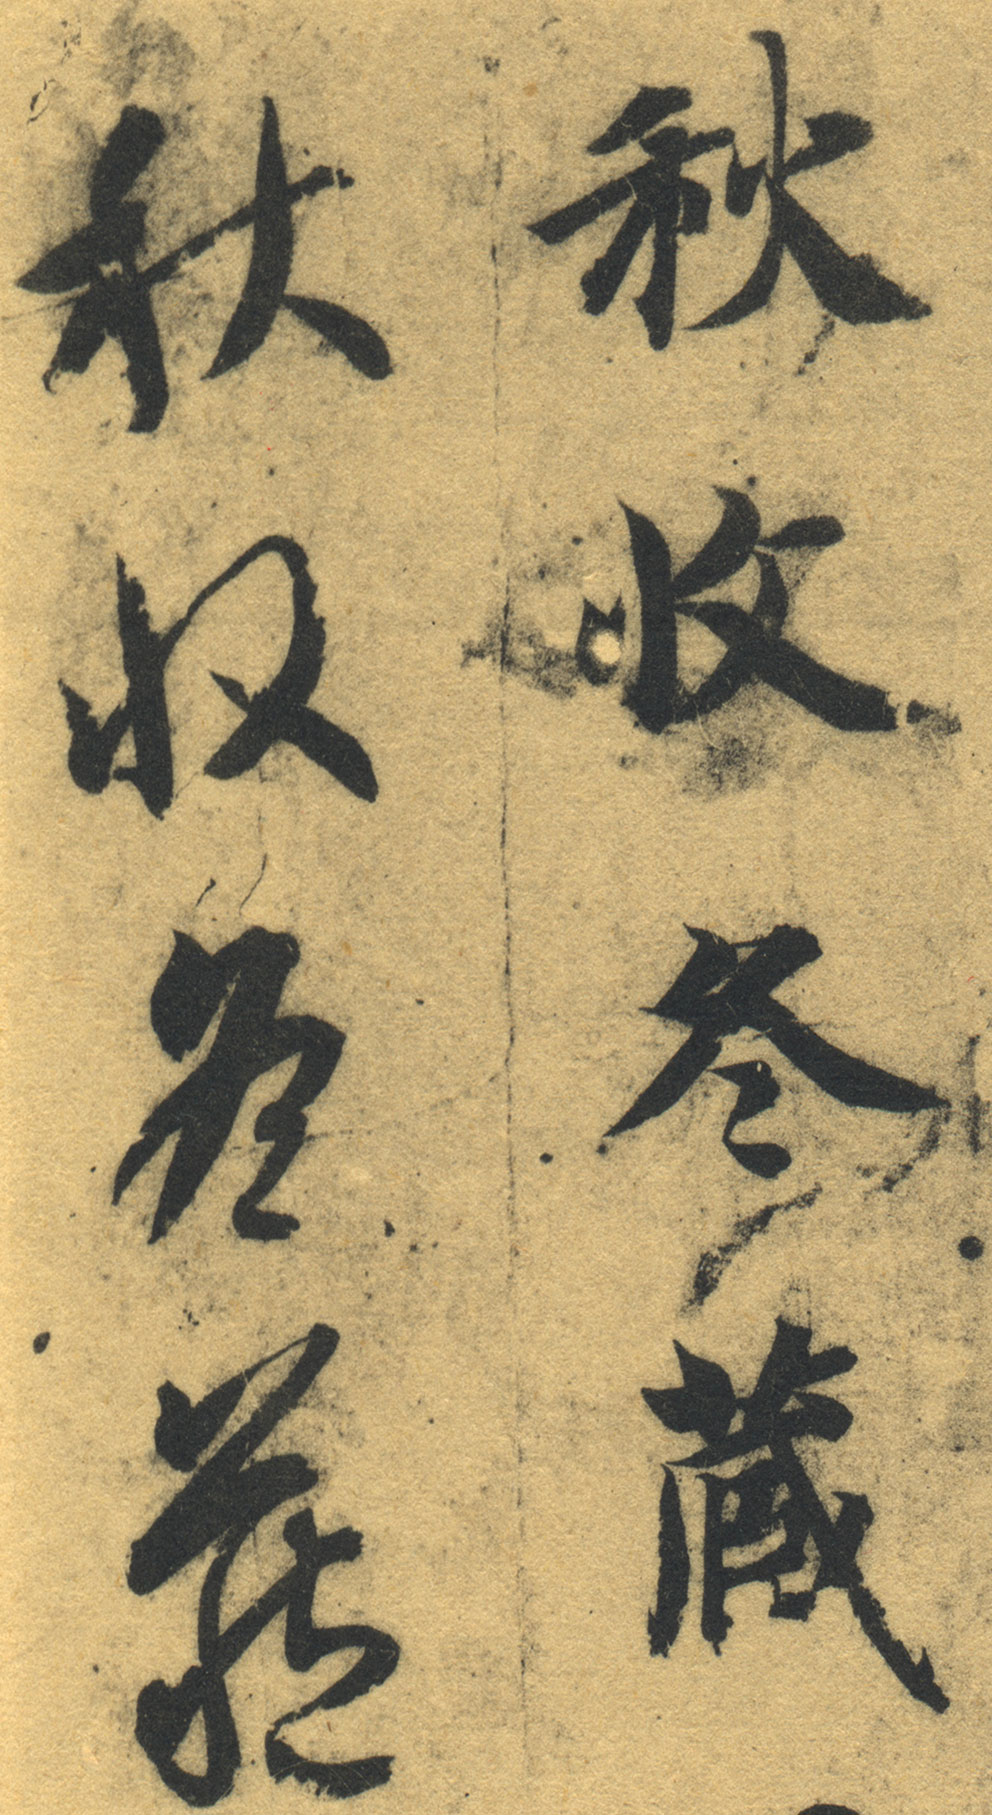 秋收冬藏
秋收冬藏